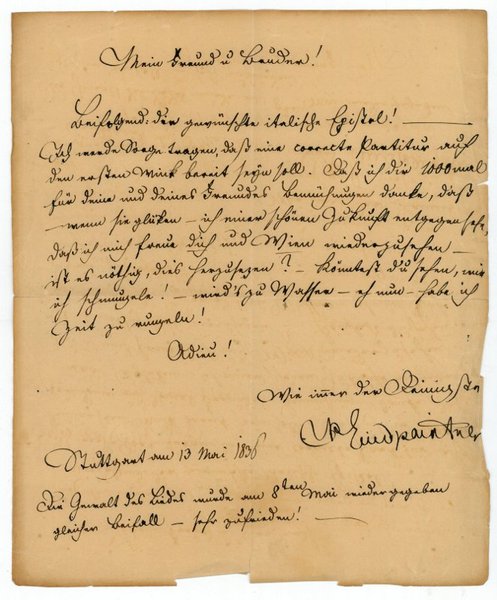 Mein Freund u Bruder!
Beifolgend: der gewünschte italische Epistol! —
Ich werde Sorge tragen, daß eine correcte Partitur auf
den ersten Wink bereit seyn soll. Daß ich dir 1000mal
für deine und deines Freundes Bemühungen danke, daß
— wenn sie glüken — ich einer schönen Zukunft entgegen sehe,
daß ich mich freue dich und Wien wiederzusehen —
ist es nöthig, dies herzusezen? — Könntest du sehen, wie
ich schmunzele! — wird's zu Wasser — eh nun — habe ich
Zeit zu runzeln!
Adieu!
Wie immer der Deinigste
Lindpaintner
Stuttgart am 13 Mai 1836
Die Gewalt des Liedes wurde am 8ten Mai wiedergegeben
gleicher Beifall — sehr zufrieden! —